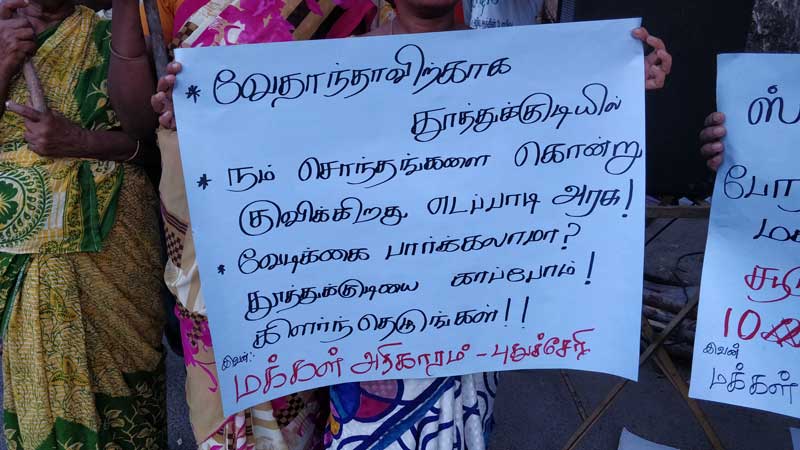 * வேதாந்தாவிற்காக
தூத்துக்குடியில்
* நம் சொந்தங்களை கொன்று
குவிக்கிறது எடப்பாடி அரசு!
* வேடிக்கை பார்க்கலாமா?
தூத்துக்குடியை காப்போம்!
கிளர்ந்தெடுங்கள்!!
இவன்:
மக்கள் அதிகாரம் - புதுச்சேரி
ஸ்
போரா
மக்
சூடு
10
இவன்
மக்கள்